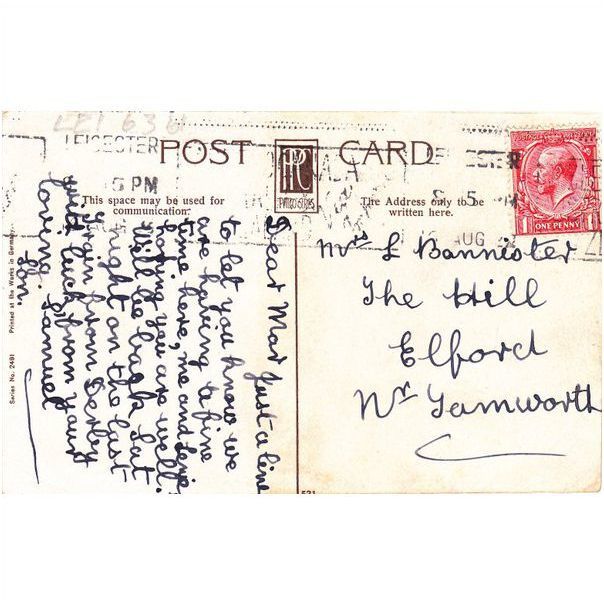 LEI 63
LEICESTER
POST CARD
LEICESTER
5 PM
AUG
5
ONE PENNY
1 1
This space may be used for
communication.
The Address only to be
written here.
Dear Mar Just a line
to let you know we
are having a fine
time here, me and
hoping you are well.
Will be back Sat
night on the last
train from Derby
luck from Yaunt
loving Samuel
Son
Mrs L Bannister
The Hill
Elford
Nr Tamworth
Printed at the Works in Germany.
Series No. 2491
521